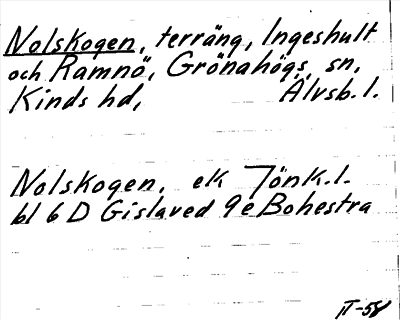 Nolskogen, terräng, Ingeshult
och Ramnö, Grönahögs sn,
Kinds hd, Älvsb. l.
Nolskogen, ek Jönk. l.
bl 6 D Gislaved 9 e Bohestra
II-58